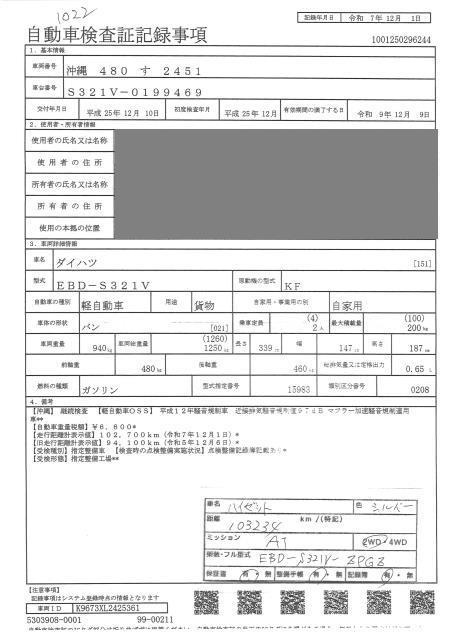 1022
記録年月日 令和 7年12月 1日
自動車検査証記録事項
1001250296244
1. 基本情報
車両番号 沖縄 480 す 2451
車台番号 S321V-0199469
交付年月日 平成 25年12月 10日 初度検査年月 平成 25年12月 有効期間の満了する日 令和 9年12月 9日
2. 使用者・所有者情報
使用者の氏名又は名称
使用者の住所
所有者の氏名又は名称
所有者の住所
使用の本拠の位置
3. 車両詳細情報
車名 ダイハツ [151]
型式 EBD-S321V 原動機の型式 KF
自動車の種別 軽自動車 用途 貨物 自家用・事業用の別 自家用
車体の形状 バン [021] 乗車定員 (4) 2人 最大積載量 (100) 200kg
車両重量 940kg 車両総重量 (1260) 1250kg 長さ 339cm 幅 147cm 高さ 187cm
前軸重 480kg 後軸重 460kg 総排気量又は定格出力 0.65 L
燃料の種類 ガソリン 型式指定番号 15983 類別区分番号 0208
4. 備考
【沖縄】 継続検査 【軽自動車OSS】 平成12年騒音規制車 近接排気騒音規制値97dB マフラー加速騒音規制適用
車**
【自動車重量税額】¥6,600*
【走行距離計表示値】102,700km(令和7年12月1日)*
【旧走行距離計表示値】94,100km(令和5年12月6日)*
【受検種別】指定整備車 【検査時の点検整備実施状況】点検整備記録簿記載あり*
【受検形態】指定整備工場**
車名 ハイゼット 色 シルバー
距離 103234 km/(特記)
ミッション AT 2WD・4WD
型式・フル型式 EBD-S321V-ZPGZ
保証書 有・無 整備手帳 有・無 記録簿 有・無
【注意事項】
記録事項はシステム登録時点の情報となります
車両ID K9673XL2425361
5303908-0001 99-00211